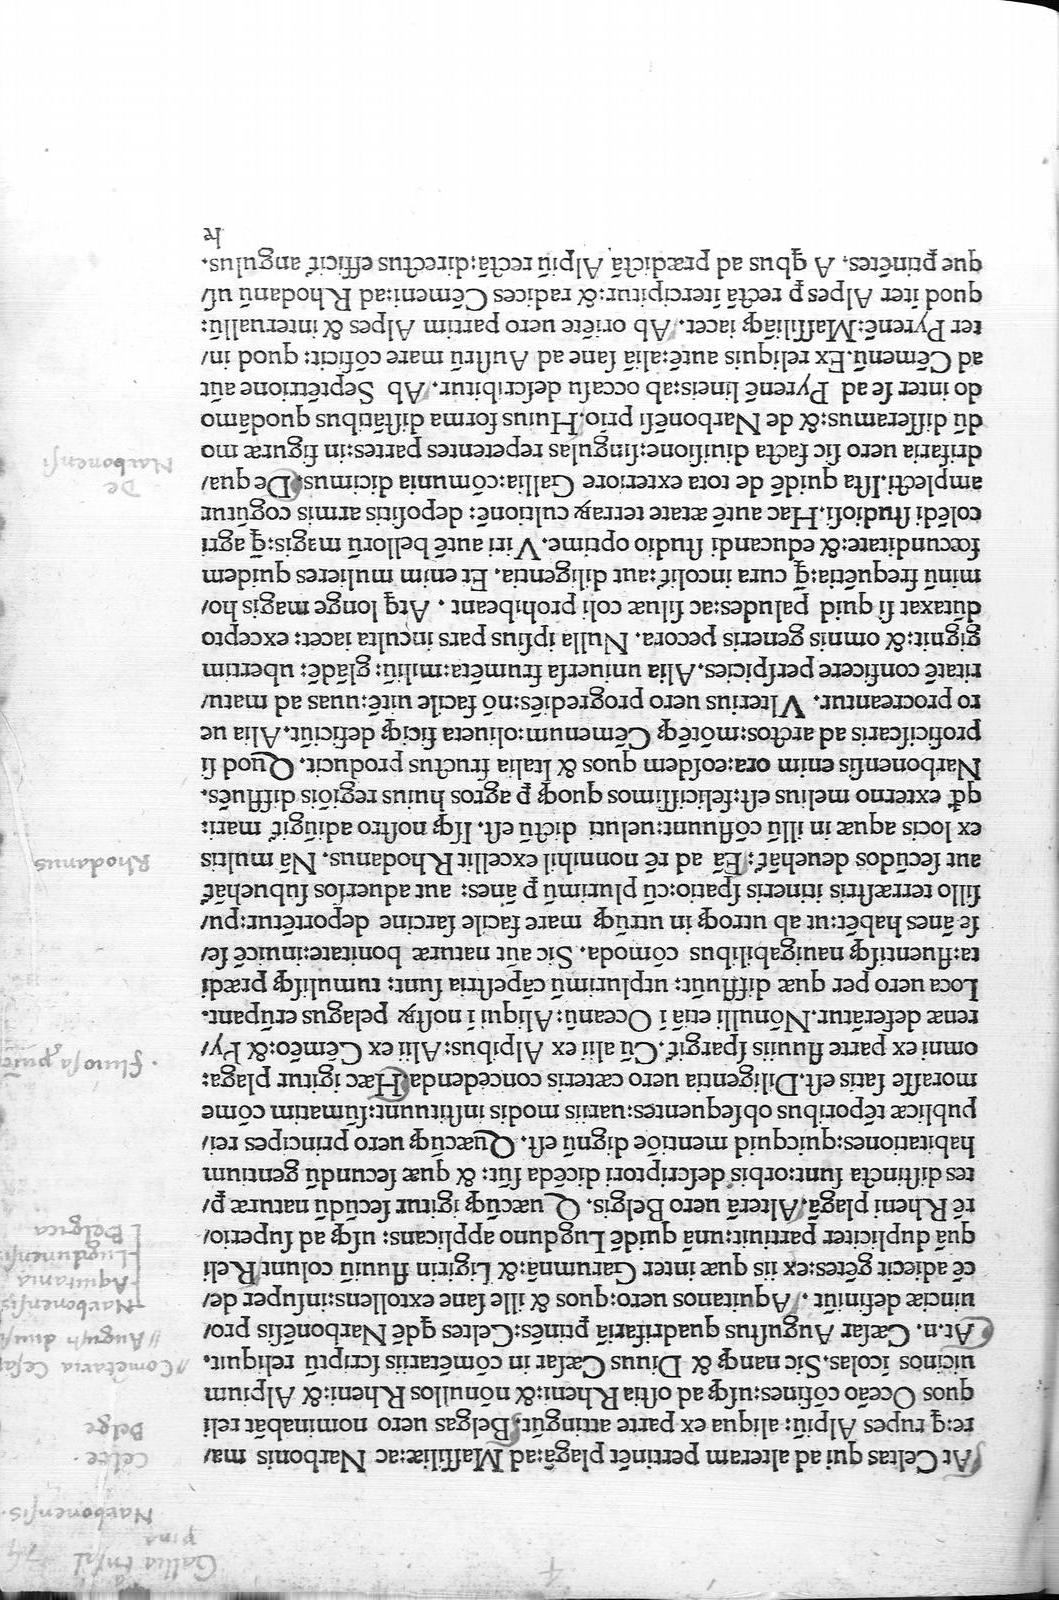 At Celtas qui ad alteram pertinēt plagā:ad Massiliæ:ac Narbonis ma/
re:q̄ rupes Alpiū: aliqua ex parte attingūt. Belgas uero nominabāt reli
quos Oceāo cōfines:usq̨ ad ostia Rheni:& nōnullos Rheni:& Alpium
uicinos īcolas. Sic nanq̨ & Diuus Cæsar in cōmētariis scriptū reliquit.
At.n. Cæsar Augustus quadrifariā ptinēs:Celtes qdē Narbonēsis pro/
uinciæ definiūt. Aquitanos uero:quos & ille sane extollens:insuper de/
cē adiecit gētes:ex iis quæ inter Garumnā:& Ligirin fluuiū colunt Reli
quā dupliciter partitur:unā quidē Lugduno applicans: usq̨ ad superio/
rē Rheni plagā. Alterā uero Belgis. Quæcūq̨ igitur secūdū naturæ p̱/
tes distincta sunt:orbis descriptori dicēda sūt: & quæ secundū gentium
habitationes:quicquid mentiōe dignū est. Quæcūq̨ uero principes rei/
publicæ tēporibus obsequentes:uariis modis instituunt:sūmatim cōme
morasse satis est. Diligentia uero cæteris concedenda. Hæc igitur plaga:
omni ex parte fluuiis spargit᷑. Cū alii ex Alpibus: Alii ex Cēmēo:& Py/
renæ deferātur. Nōnulli etiā ī Oceanū: Aliqui ī nostꝝ pelagus erūpant.
Loca uero per quæ diffluūt: utplurimū cāpestria sunt: tumulisq̨ prædi
ta:fluentisq̨ nauigabilibus cōmoda. Sic aūt naturæ bonitate:inuicē se/
se ānes habēt:ut ab utroq̨ in utrūq̨ mare facile sarcine deportētur:pu/
sillo terræstris itineris spatio:cū plurimū p̱ ānes: aut aduersos subuehāt᷑
aut secūdos deuehāt᷑: Eā ad rē nonnihil excellit Rhodanus. Nā multis
ex locis aquæ in illū cōfluunt:ueluti dictū est. Isq̨ nostro adiūgit᷑ mari:
qd̄ externo melius est:felicissimos quoq̨ p̱ agros huius regiōis diffluēs.
Narbonensis enim ora:eosdem quos & Italia fructus producit. Quod si
proficiscaris ad arctos:mōtēq̨ Cēmenum:oliueta ficiq̨ deficiūt. Alia ue
ro procreantur. Vlterius uero progrediēs:nō facile uitē:uuas ad matu/
ritatē conficere perspicies. Alia uniuersa frumēta:miliū: glādē: uberrim
gignit:& omnis generis pecora. Nulla ipsius pars inculta iacet: excepto
dūtaxat si quid paludes:ac siluæ coli prohibeant. Atq̨ longe magis ho/
minū frequētia:q̄ cura incolit᷑:aut diligentia. Et enim mulieres quidem
fœcunditate:& educandi studio optime. Viri autē bellorū magis:q̄ agri
colēdi studiosi. Hac autē ætate terraꝝ cultionē: depositis armis cogūtur
amplecti. Ista quidē de tota exteriore Gallia:cōmunia dicimus. De qua/
drifaria uero sic facta diuisione:singulas repetentes partes:in figuræ mo
dū disseramus:& de Narbonēsi prīo. Huius forma distātibus quodāmo
do inter se ad Pyrenē lineis:ab occasu describitur. Ab Septētrione aūt
ad Cēmenū. Ex reliquis autē:aliā sane ad Austrū mare cōficit: quod in/
ter Pyrenē:Massiliāq̨ iacet. Ab oriēte uero partim Alpes & interuallū:
quod iter Alpes p̱ rectā itercipitur:& radices Cēmeni:ad Rhodanū us/
que ptinētes. A qbus ad prædictā Alpiū rectā:directus efficit᷑ angulus.
Narbonensis.
Celtæ.
Belgæ
Narbonensis
Aquitania
Belgica
Rhodanus
De
Narbonensi